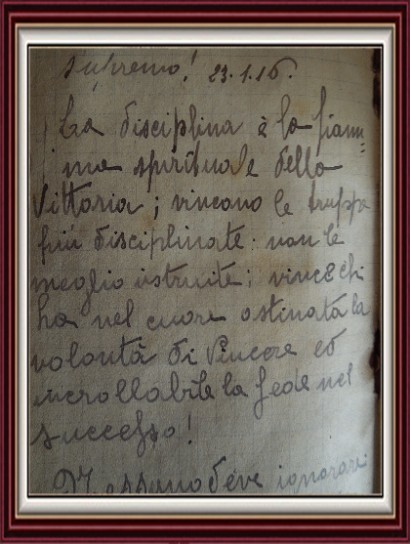 supremo! 23.1.16.
La disciplina è la fiam=
ma spirituale della
Vittoria; vincono le truppe
più disciplinate: non le
meglio istruite; vince chi
ha nel cuore ostinata la
volontà di Vincere ed
incrollabile la fede nel
successo!
Nessuno deve ignorare